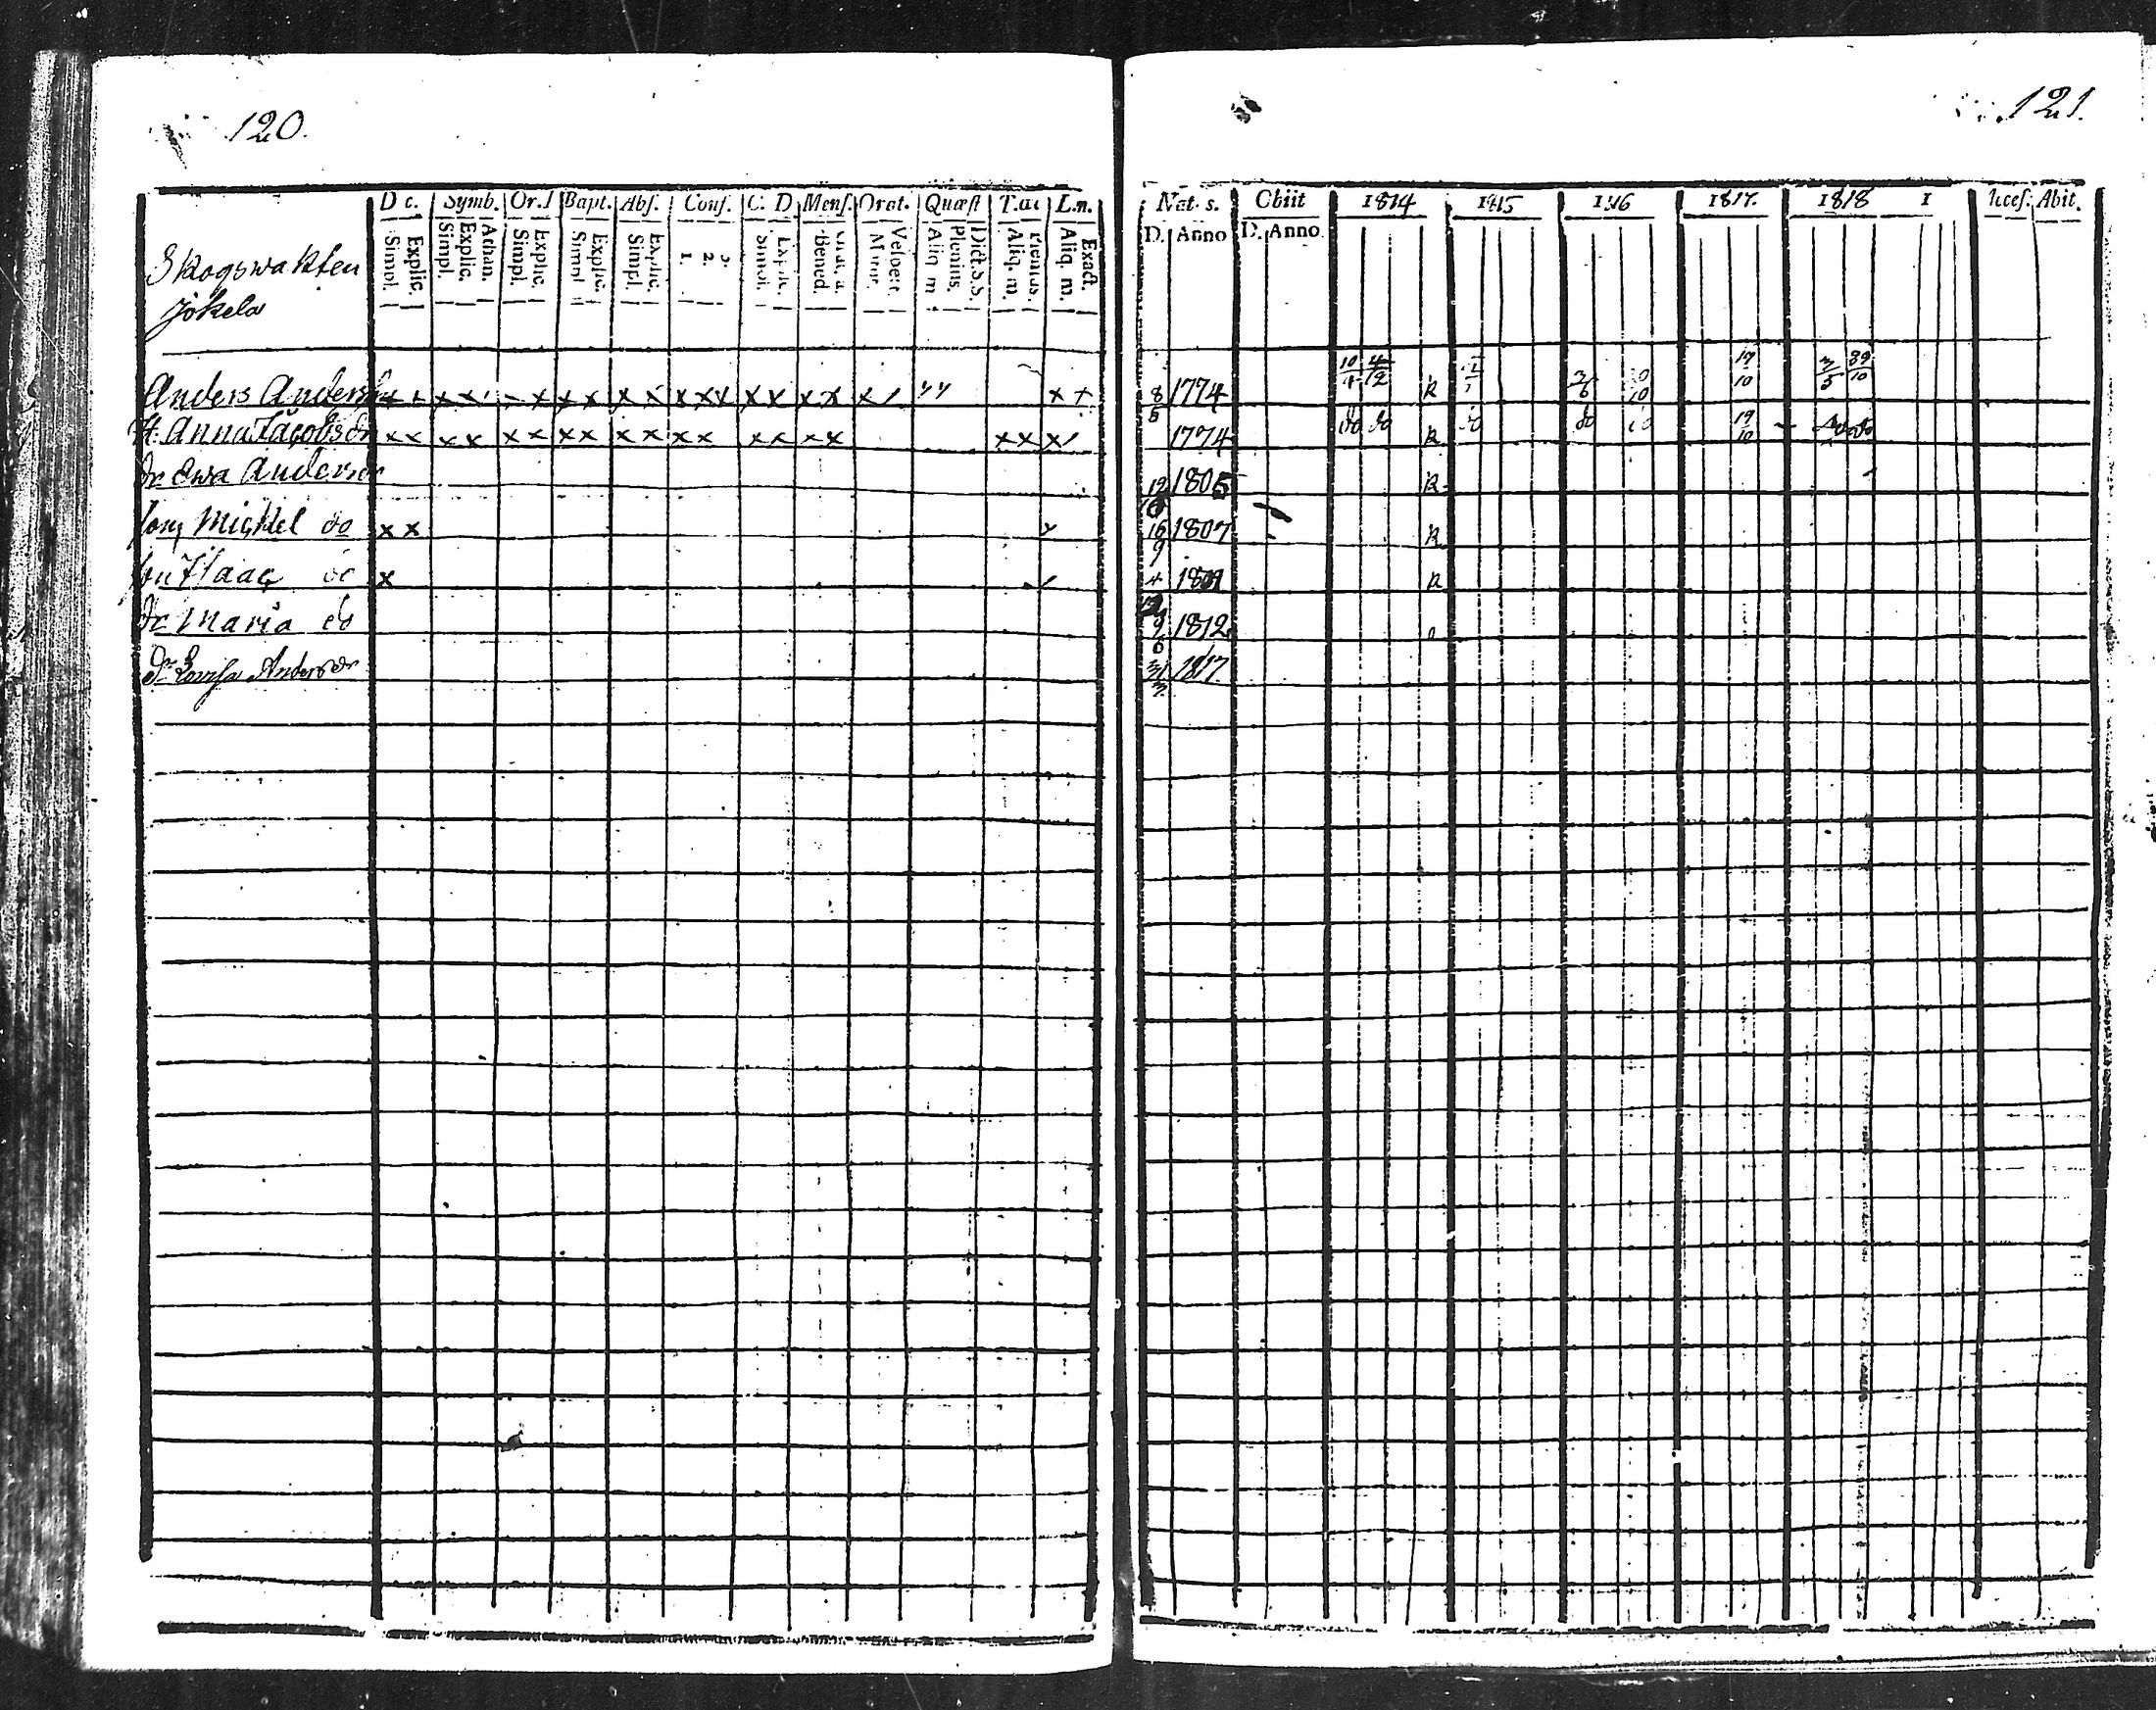 120.
Dec. Symb. Or.D Bapt. Abs. Conf. C. D Mens. Orat. Quæst T.ac L.n.
Simpl. Explic. Simpl. Explic. Athan. Simpl. Explic. Simpl. Explic. Simpl. Explic. 1. 2. 3. Simpl. Explic. Bened. Grat. a. Minor. Veloert. Aliq. m. Plenius. Dict.S.S. Aliq. m. Plenius. Aliq. m. Exact.
Skogswakten
Jokela
Anders Andersson x x x x x x x x x x x x x x x x x x
H. Anna Jacobsdr x x x x x x x x x x x x x x x x x x x
Dr Ewa Andersdr
Son Michel do x x
Son Isaac do x
Dr Maria do
Dr Lovisa Andersdr
121.
Nat. s. Obiit 1814 1815 1816 1817. 1818 1 Acces. Abit.
D. Anno D. Anno
8/5 1774 10/4 4/12 R 2/6 10 17/10 3/5 89/10
1774 do do R do do do 19/10 do do
12/6 1805 R
16/9 1807 R
4/12 1809 R
9/6 1812
31/3 1817